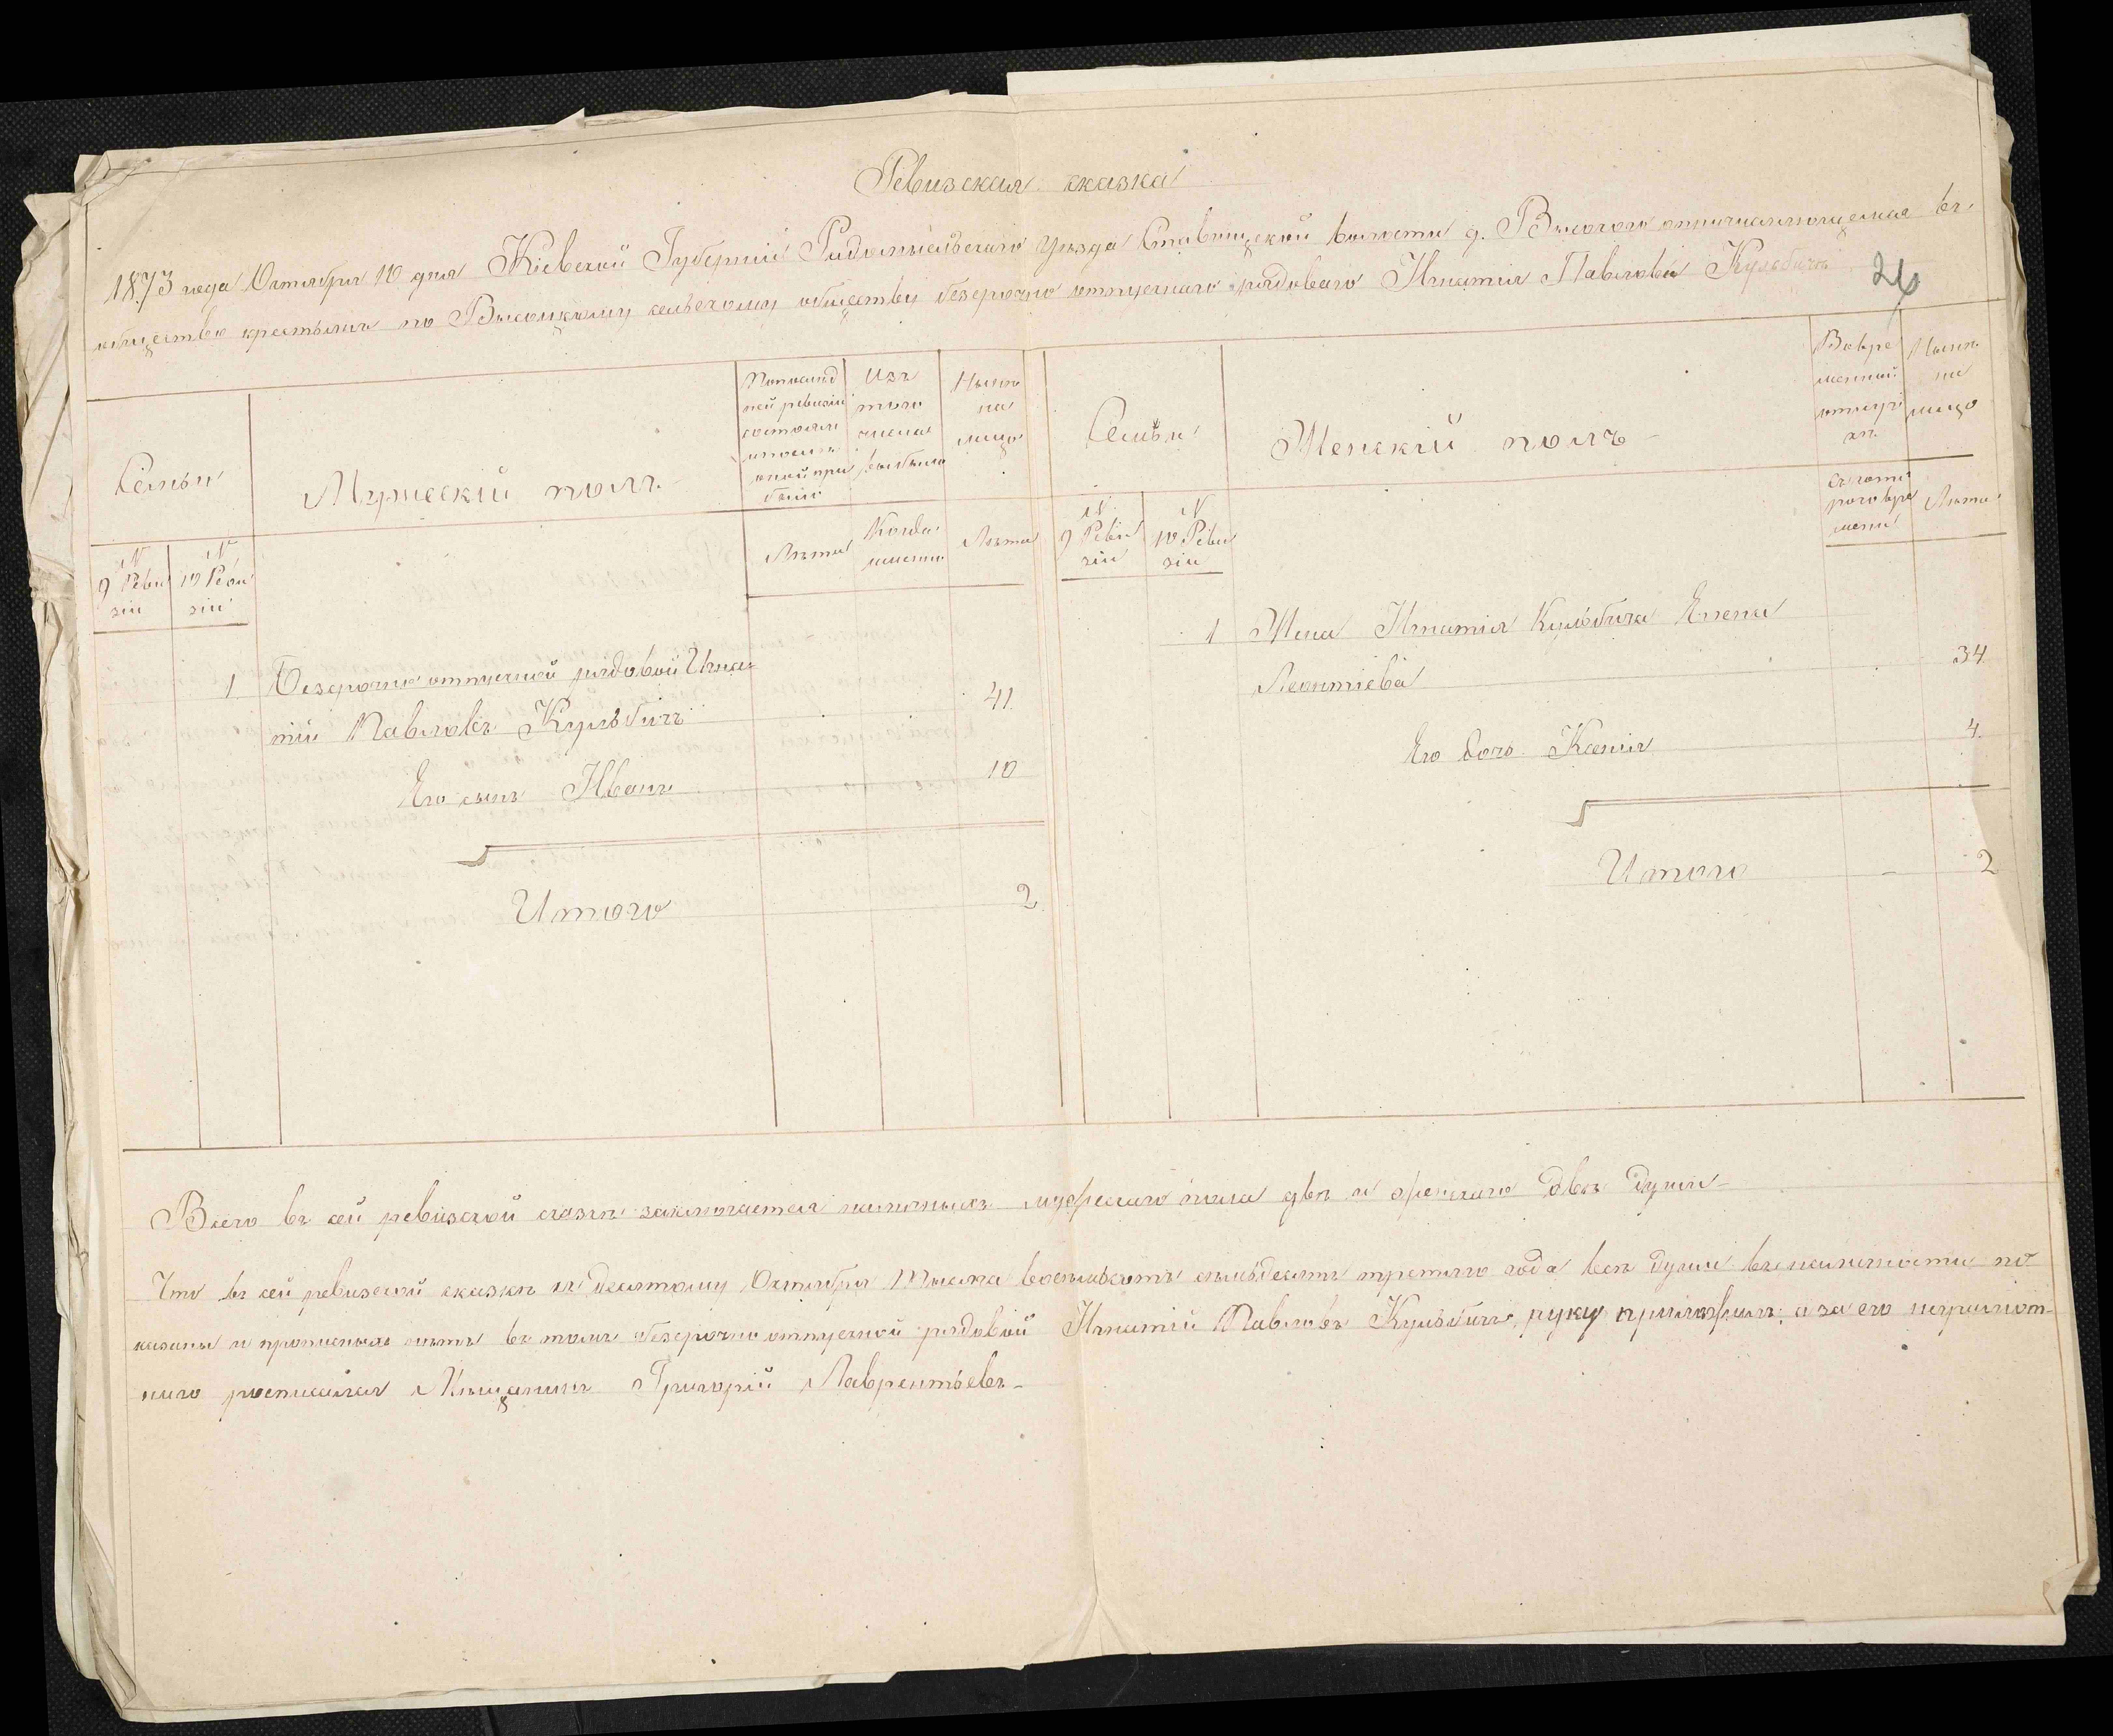 Ревизская сказка
1873 года Октября 10 дня Кіевской Губерніи Радомысльскаго уезда Ставищской волости д. Высокого отпричисляющемся въ
общество крестьянъ по Высоцкому сельскому обществу безсрочно отпускнаго рядоваго Игнатія Павлова Кульбичъ
26
Семьи
Мужескій полъ
По послед
ней ревизіи
состояло
и после
оной при
было
Изъ
того
числа
выбыло
Ныне
на
лицо
Семьи
Женскій полъ
Во вре
менной
отлуч
ке
Ныне
на
лицо
№ 9 Реви
зіи
№ 10 Реви
зіи
Лета
Когда
именно
Лета
№ 9 Реви
зіи
№ 10 Реви
зіи
Съ кото
рого вре
мени
Лета
1 Безсрочно отпускной рядовой Игна
тій Павловъ Кульбичъ 41
Его сынъ Иванъ 10
Итого 2
1 Жена Игнатія Кульбича Елена
Леонтіева 34
Его дочь Ксенія 4
Итого - 2
Всего въ сей ревизской сказке заключается наличныхъ мужескаго пола две и женскаго две души
Что въ сей ревизской сказке къ десятому Октября тысяча восемьсотъ семьдесятъ третьяго года все души въ наличности по
казаны и прописныхъ нетъ въ томъ безсрочно отпускной рядовой Игнатій Павловъ Кульбичъ, руку приложилъ, а за его неграмот-
наго росписался Мещанинъ Григорій Лаврентьевъ